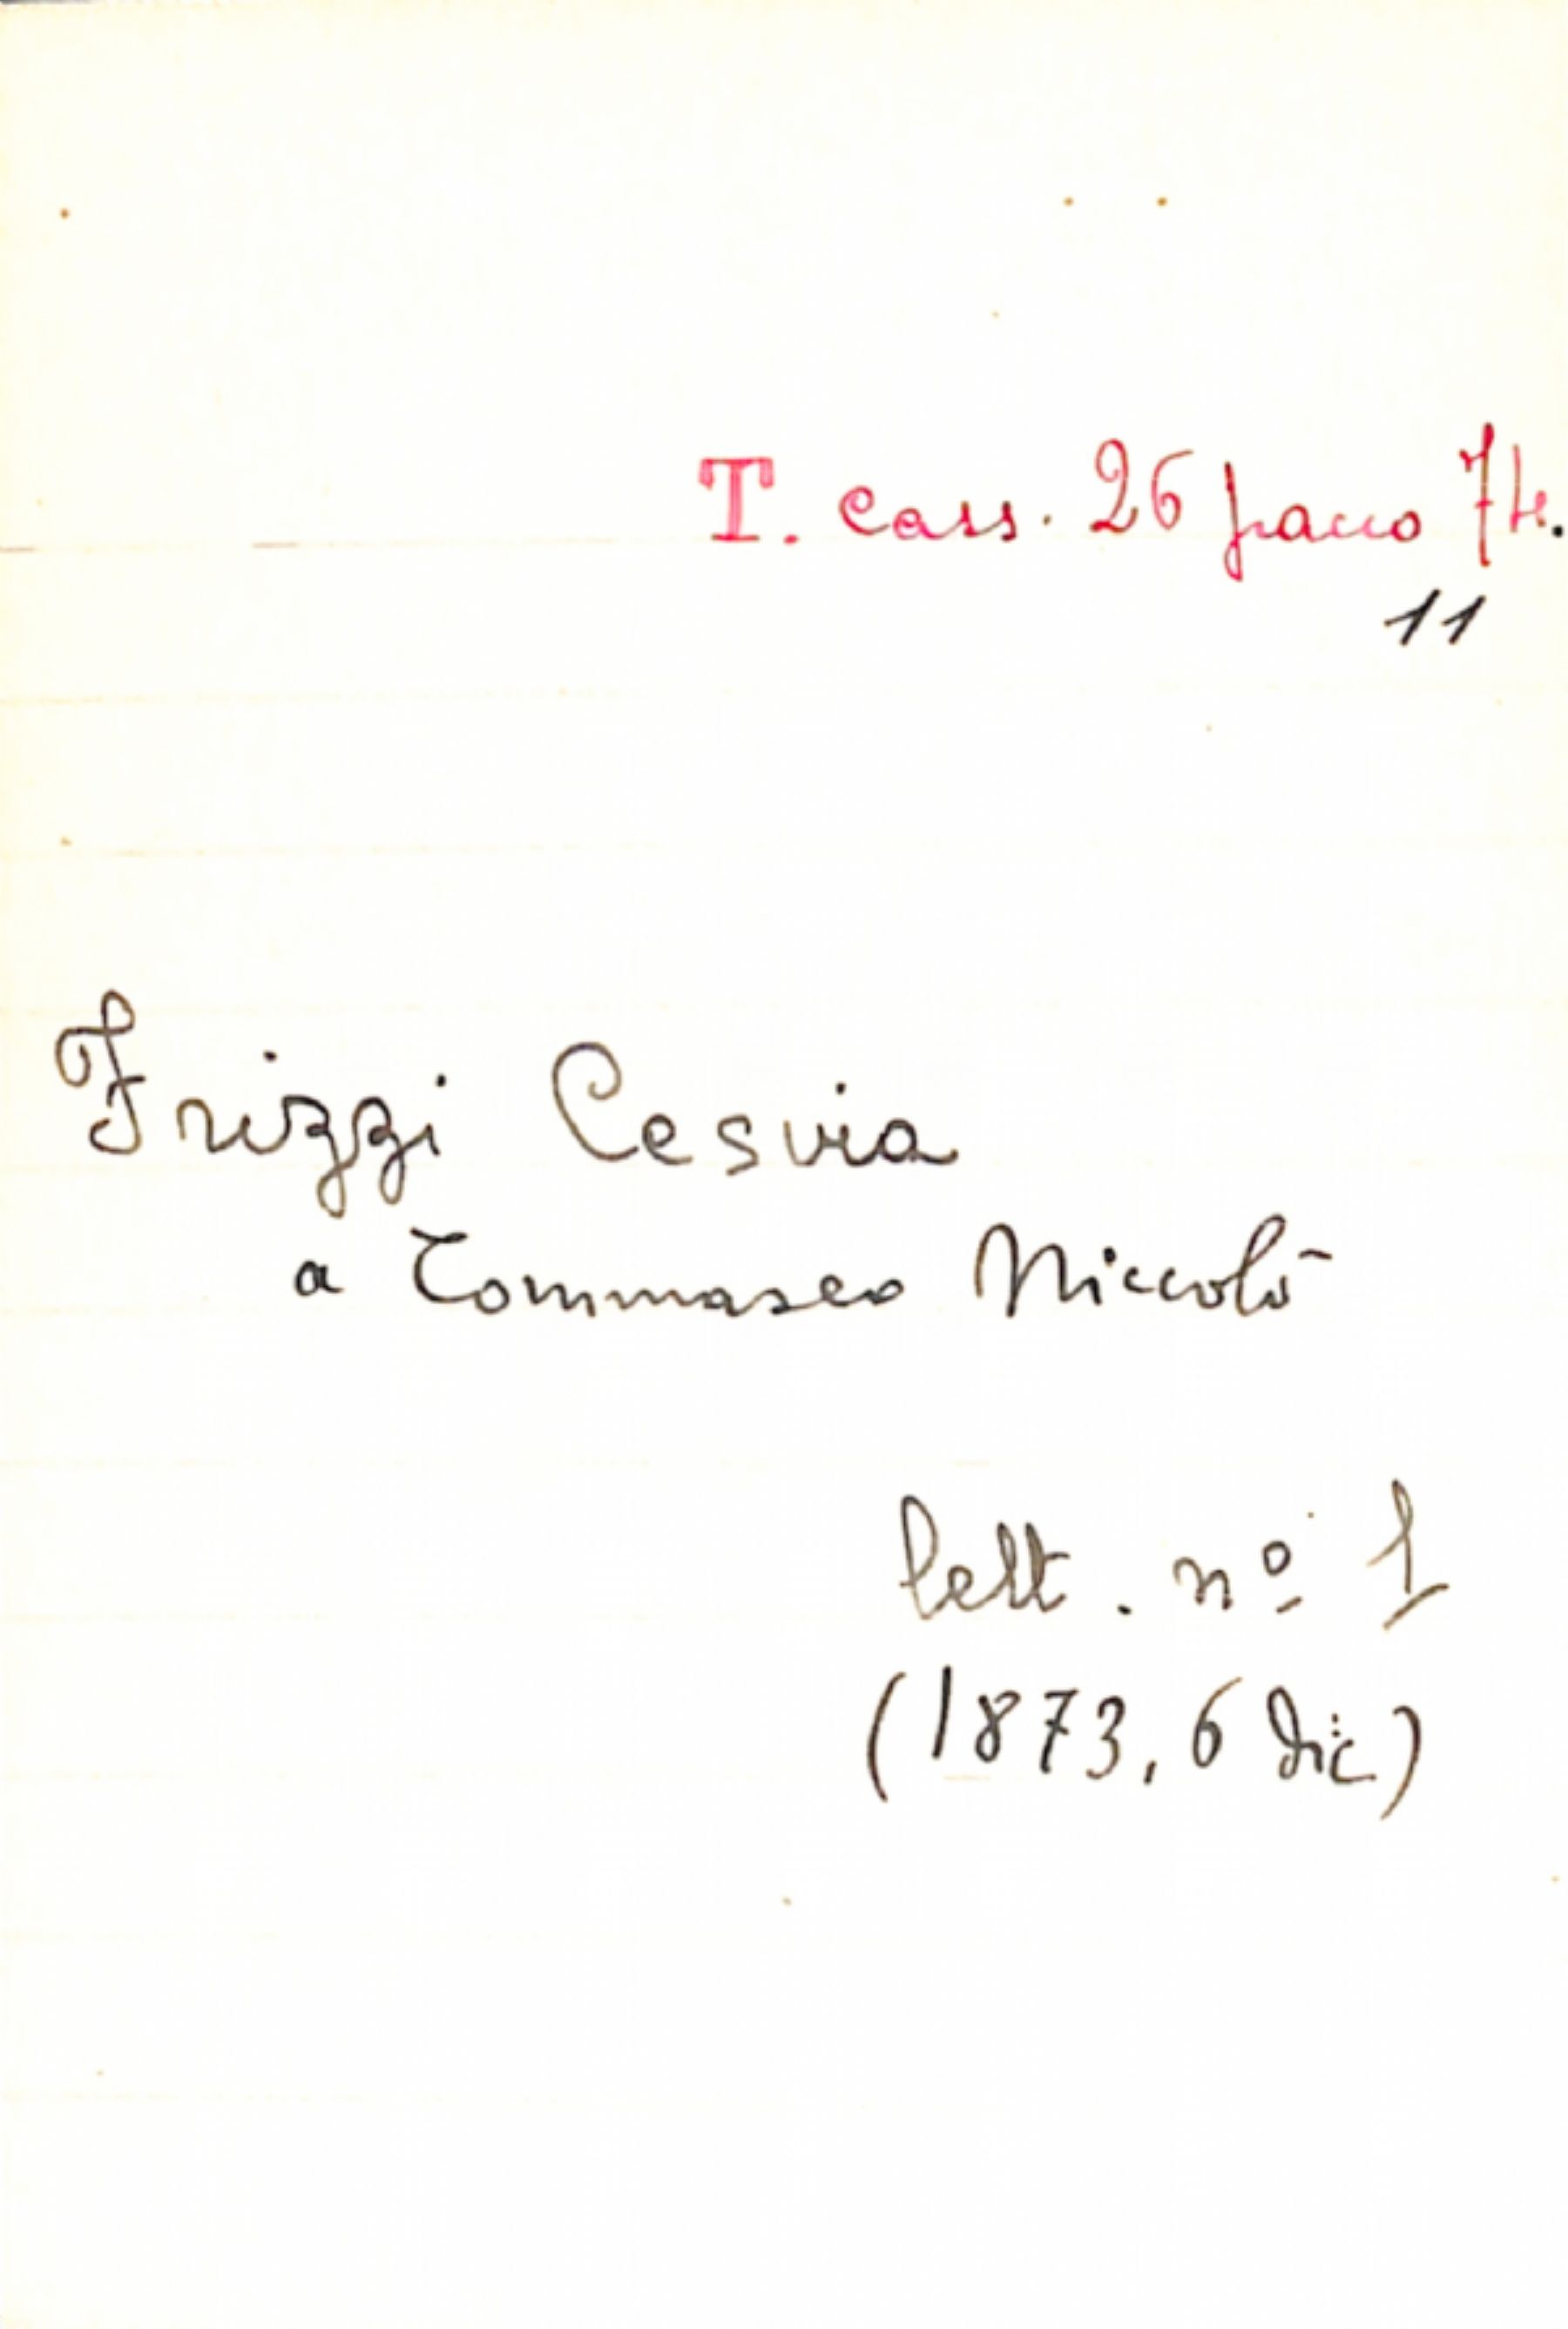 T. cass. 26 pacco 74.
11
Frizzi Cesvia
a Tommaseo Niccolò
lett. nº 1
(1873, 6 dic)